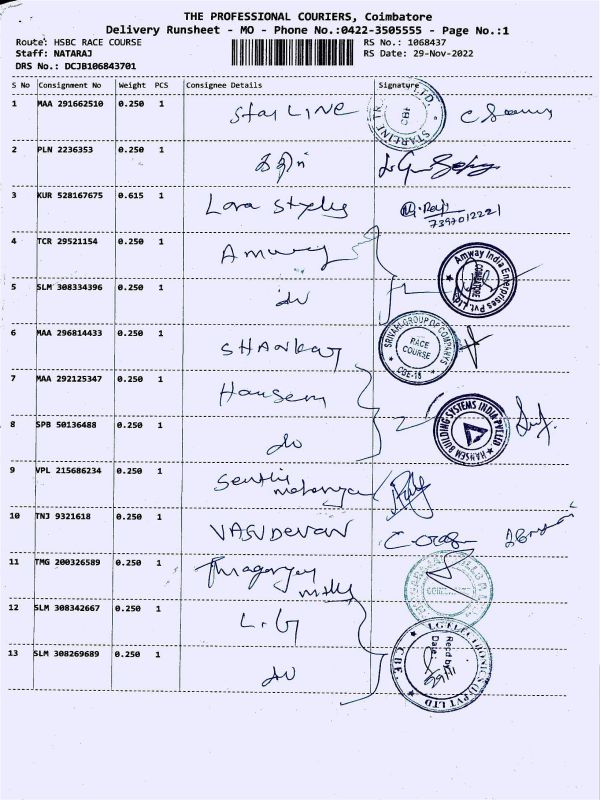 THE PROFESSIONAL COURIERS, Coimbatore
Delivery Runsheet - MO - Phone No.:0422-3505555 - Page No.:1
Route: HSBC RACE COURSE RS No.: 1068437
Staff: NATARAJ RS Date: 29-Nov-2022
DRS No.: DCJB106843701
S No Consignment No Weight PCS Consignee Details Signature
1 MAA 291662510 0.250 1 Star LINE
2 PLN 2236353 0.250 1
3 KUR 528167675 0.615 1 Lora Styles M. Raji
7397012221
4 TCR 29521154 0.250 1 Amway Amway India Enterprises Pvt. Ltd.
5 SLM 308334396 0.250 1 do
6 MAA 296814433 0.250 1 SHANkar SRIVARI GROUP OF COMPANYS RACE COURSE CBE-18
7 MAA 292125347 0.250 1 Hansem
8 SPB 50136488 0.250 1 do HANSEM BUILDING SYSTEMS INDIA PVT LTD
9 VPL 215686234 0.250 1 Senthil
10 TNJ 9321618 0.250 1 VASUDEVAN
11 TMG 200326589 0.250 1 Thiagarajar
mills
12 SLM 308342667 0.250 1 L.G
13 SLM 308269689 0.250 1 do LG ELECTRONICS (I) PVT LTD CBE. Recd by Date: